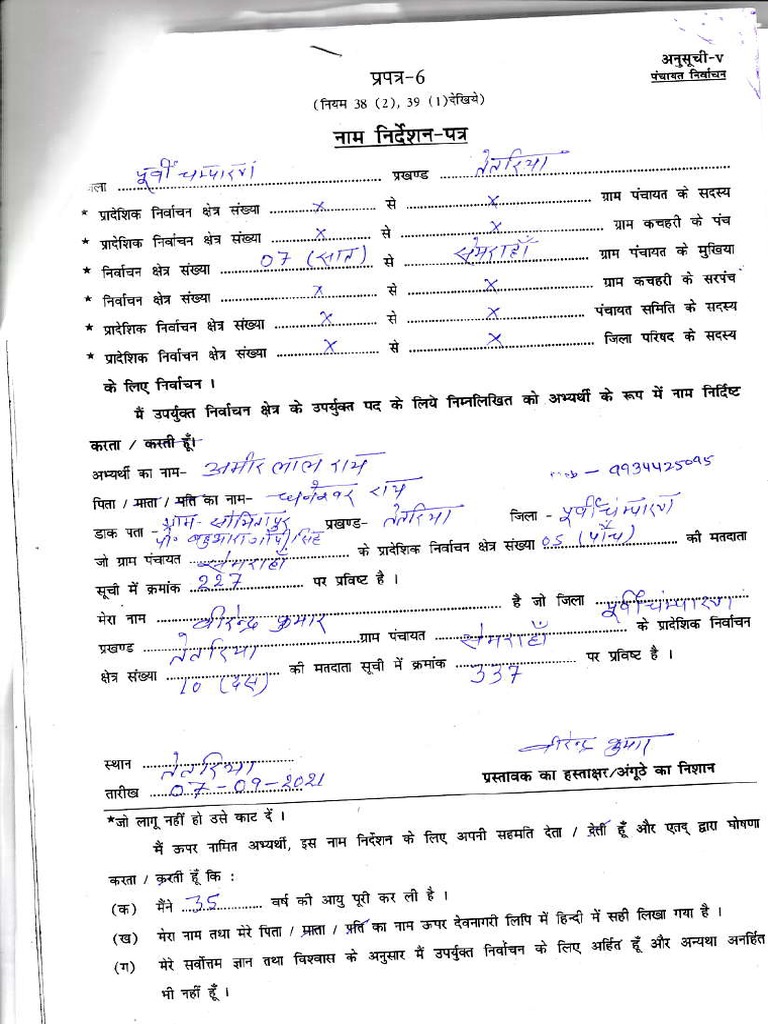 अनुसूची-V
प्रपत्र-6
पंचायत निर्वाचन
(नियम 38 (2), 39 (1)देखिये)
नाम निर्देशन-पत्र
जिला पूर्वी चम्पारण प्रखण्ड तेतरिया
* प्रादेशिक निर्वाचन क्षेत्र संख्या x से x ग्राम पंचायत के सदस्य
* प्रादेशिक निर्वाचन क्षेत्र संख्या x से x ग्राम कचहरी के पंच
* निर्वाचन क्षेत्र संख्या 07 (सात) से सेमराहाँ ग्राम पंचायत के मुखिया
* निर्वाचन क्षेत्र संख्या x से x ग्राम कचहरी के सरपंच
* प्रादेशिक निर्वाचन क्षेत्र संख्या x से x पंचायत समिति के सदस्य
* प्रादेशिक निर्वाचन क्षेत्र संख्या x से x जिला परिषद के सदस्य
के लिए निर्वाचन ।
मैं उपर्युक्त निर्वाचन क्षेत्र के उपर्युक्त पद के लिये निम्नलिखित को अभ्यर्थी के रूप में नाम निर्दिष्ट
करता / करती हूँ।
अभ्यर्थी का नाम- अमीर लाल राय mob - 9934425095
पिता / माता / पति का नाम- धनेश्वर राय
डाक पता - ग्राम- प्रखण्ड- तेतरिया जिला - पूर्वी चंम्पारण
पो०
जो ग्राम पंचायत सेमराहाँ के प्रादेशिक निर्वाचन क्षेत्र संख्या 05 (पाँच) की मतदाता
सूची में क्रमांक 227 पर प्रविष्ट है ।
मेरा नाम वीरेन्द्र कुमार है जो जिला पूर्वी चंम्पारण
प्रखण्ड तेतरिया ग्राम पंचायत सेमराहाँ के प्रादेशिक निर्वाचन
क्षेत्र संख्या 10 (दस) की मतदाता सूची में क्रमांक 337 पर प्रविष्ट है ।
वीरेन्द्र कुमार
स्थान तेतरिया
प्रस्तावक का हस्ताक्षर/अंगूठे का निशान
तारीख 07-09-2021
*जो लागू नहीं हो उसे काट दें ।
मैं ऊपर नामित अभ्यर्थी, इस नाम निर्देशन के लिए अपनी सहमति देता / देती हूँ और एतद् द्वारा घोषणा
करता / करती हूँ कि :
(क) मैंने 35 वर्ष की आयु पूरी कर ली है ।
(ख) मेरा नाम तथा मेरे पिता / माता / पति का नाम ऊपर देवनागरी लिपि में हिन्दी में सही लिखा गया है ।
(ग) मेरे सर्वोत्तम ज्ञान तथा विश्वास के अनुसार मैं उपर्युक्त निर्वाचन के लिए अर्हित हूँ और अन्यथा अनर्हित
भी नहीं हूँ ।